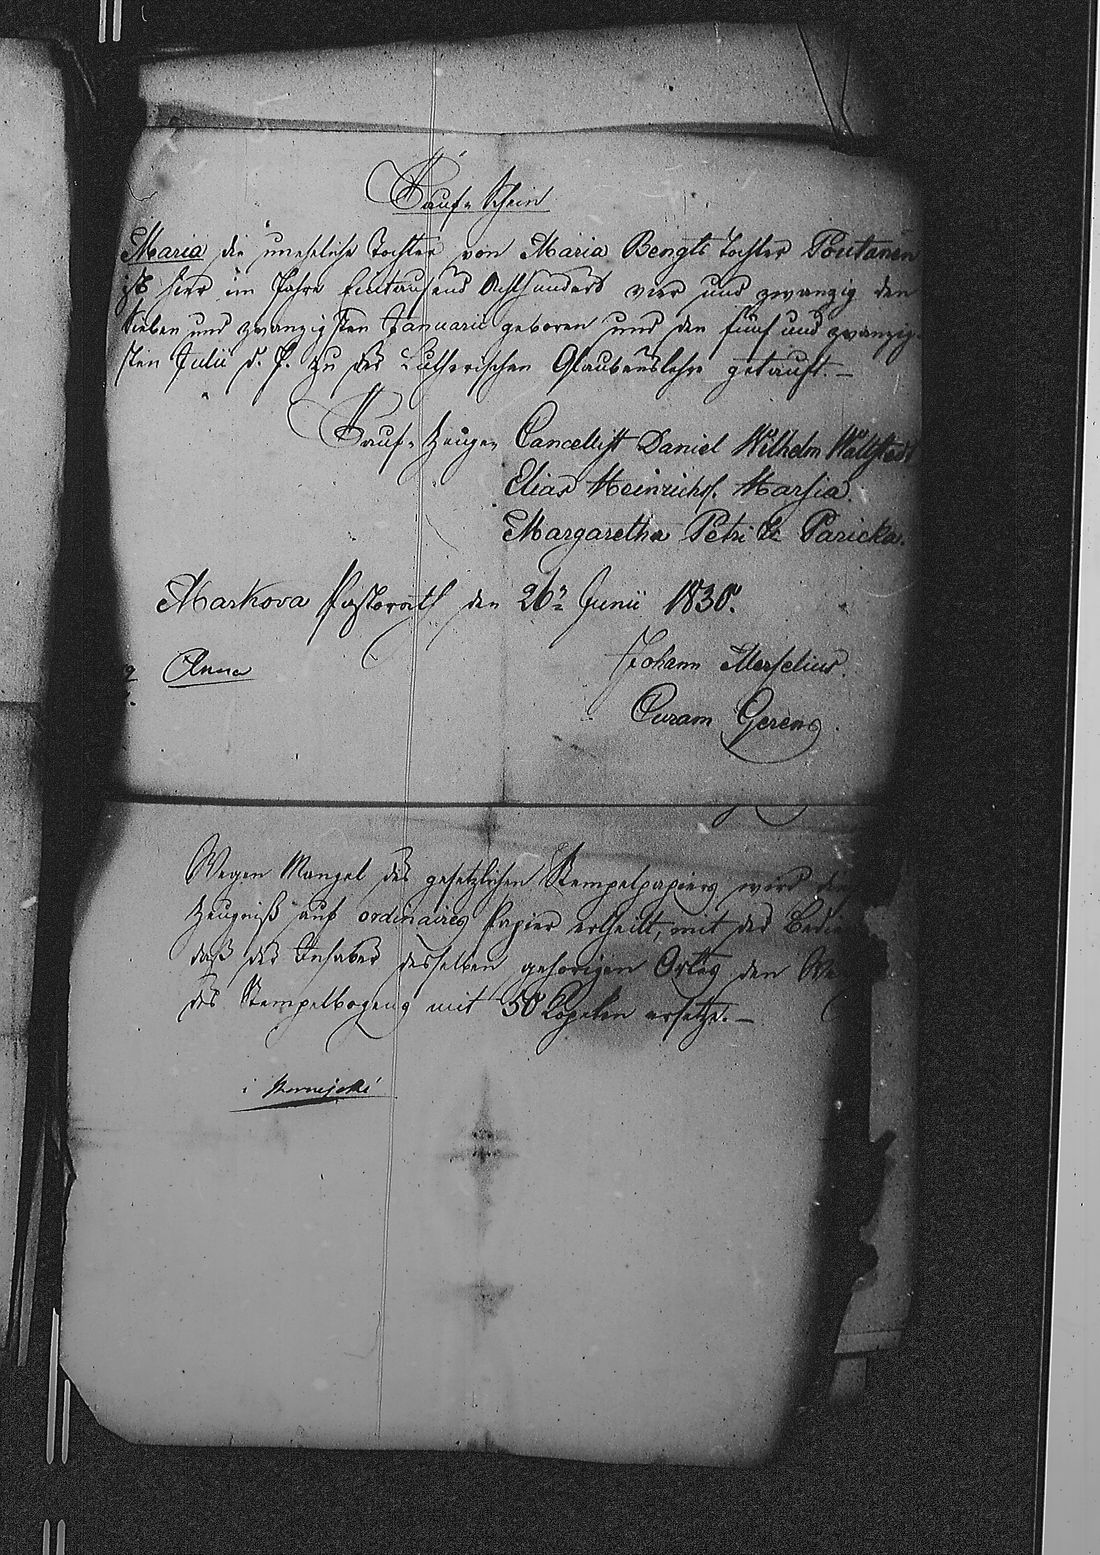 Tauf-Schein
Maria die uneheliche Tochter von Maria Bengts Tochter Poutanen
ist hier im Jahre Eintausend Achthundert vier und zwanzig den
sieben und zwanzigsten Januarii geboren und den fünf und zwanzig-
sten Julii d. J. zu der Lutherischen Glaubenslehre getauft. —
Tauf-Zeugen Cancellist Daniel Wilhelm
Elias Heinrichs.
Margaretha Petri Paricka.
Markova Pastorath den 26n Junii 1830.
Anna
Johann
Curam Gerens.
Wegen Mangel des gesetzlichen Stempelpapiers wird
Zeugniß auf ordinaires Papier ertheilt, mit der
daß der Inhaber desselben gehorigen Ortes den
des Stempelbogens mit 50 Kopeken ersetze. —